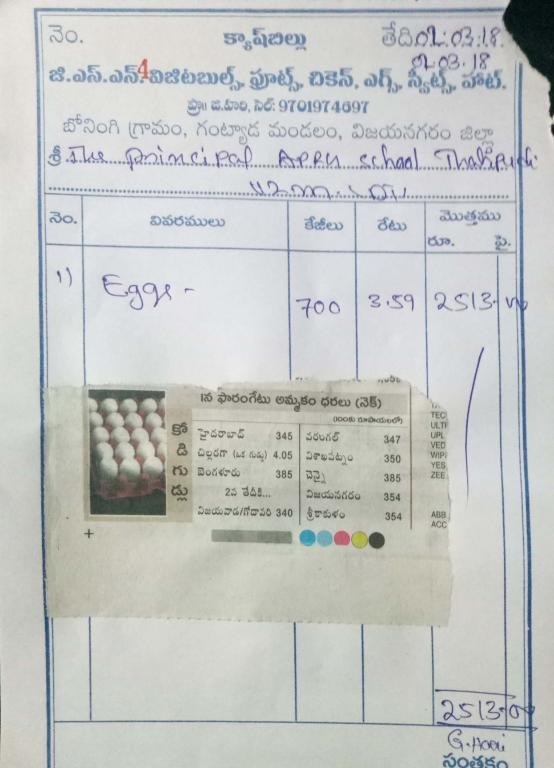 నెం. క్యాష్‌బిల్లు తేది 02.03.18
02.03.18
జి.ఎస్.ఎన్. 4 విజిటబుల్స్, ఫ్రూట్స్, చికెన్, ఎగ్స్, స్వీట్స్, హాట్.
ప్రొ॥ జి.హరి, సెల్: 9701974697
బోనంగి గ్రామం, గంట్యాడ మండలం, విజయనగరం జిల్లా
శ్రీ. The principal APRU School
నెం. వివరములు కేజీలు రేటు మొత్తము
రూ. పై.
1) Eggs - 700 3.59 2513-00
1న ఫారంగేటు అమ్మకం ధరలు (నెక్)
(100కు రూపాయలలో)
కోడిగుడ్లు
హైదరాబాద్ 345 వరంగల్ 347
చిల్లరగా (ఒక గుడ్డు) 4.05 విశాఖపట్నం 350
బెంగళూరు 385 చెన్నై 385
2వ తేదీకి... విజయనగరం 354
విజయవాడ/గోదావరి 340 శ్రీకాకుళం 354
TEC
ULTI
UPL
VED
WIPI
YES
ZEE
ABB
ACC
2513-00
G. Hari
సంతకం